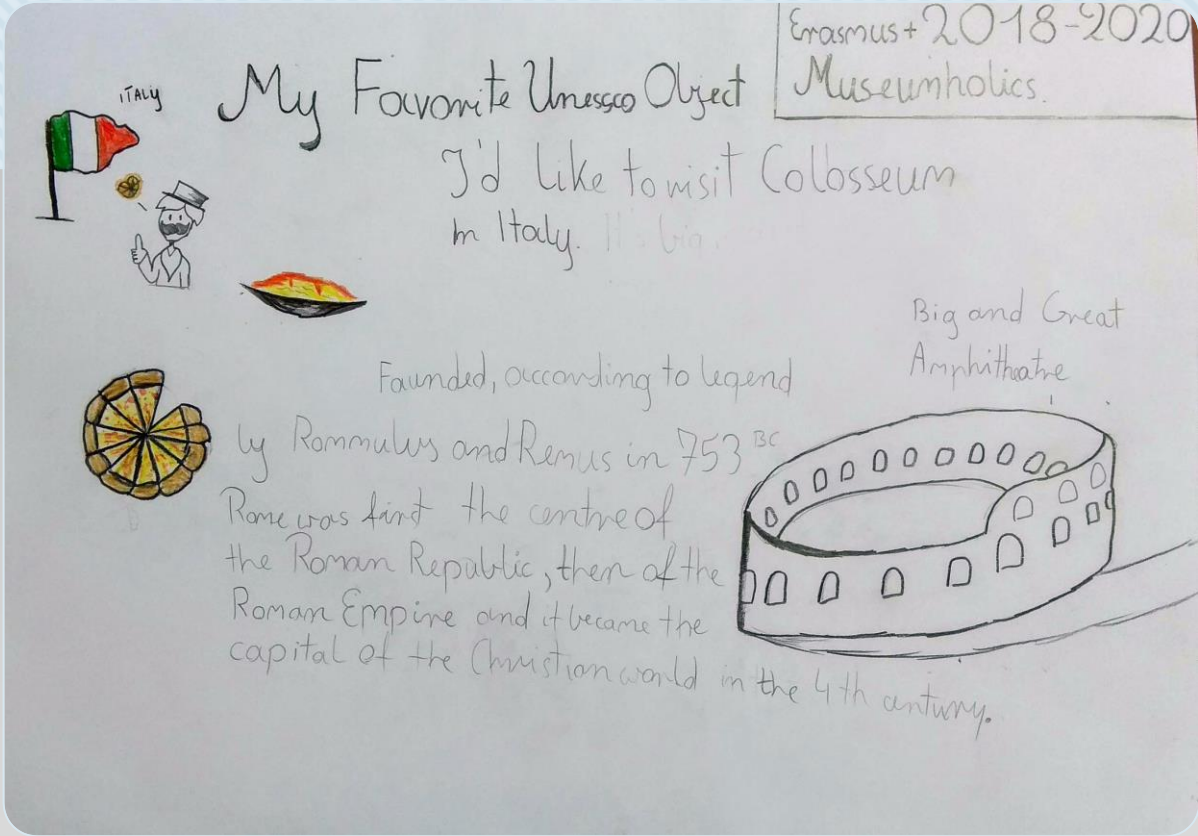 Erasmus+ 2018-2020
Museumholics.
ITALY
My Favorite Unessco Object
I'd like to visit Collosseum
in Italy.
Big and Great
Amphitheatre
Faunded, according to legend
by Rommulus and Remus in 753 BC
Rome was first the centre of
the Roman Republic, then of the
Roman Empire and it became the
capital of the Christian world in the 4th century.